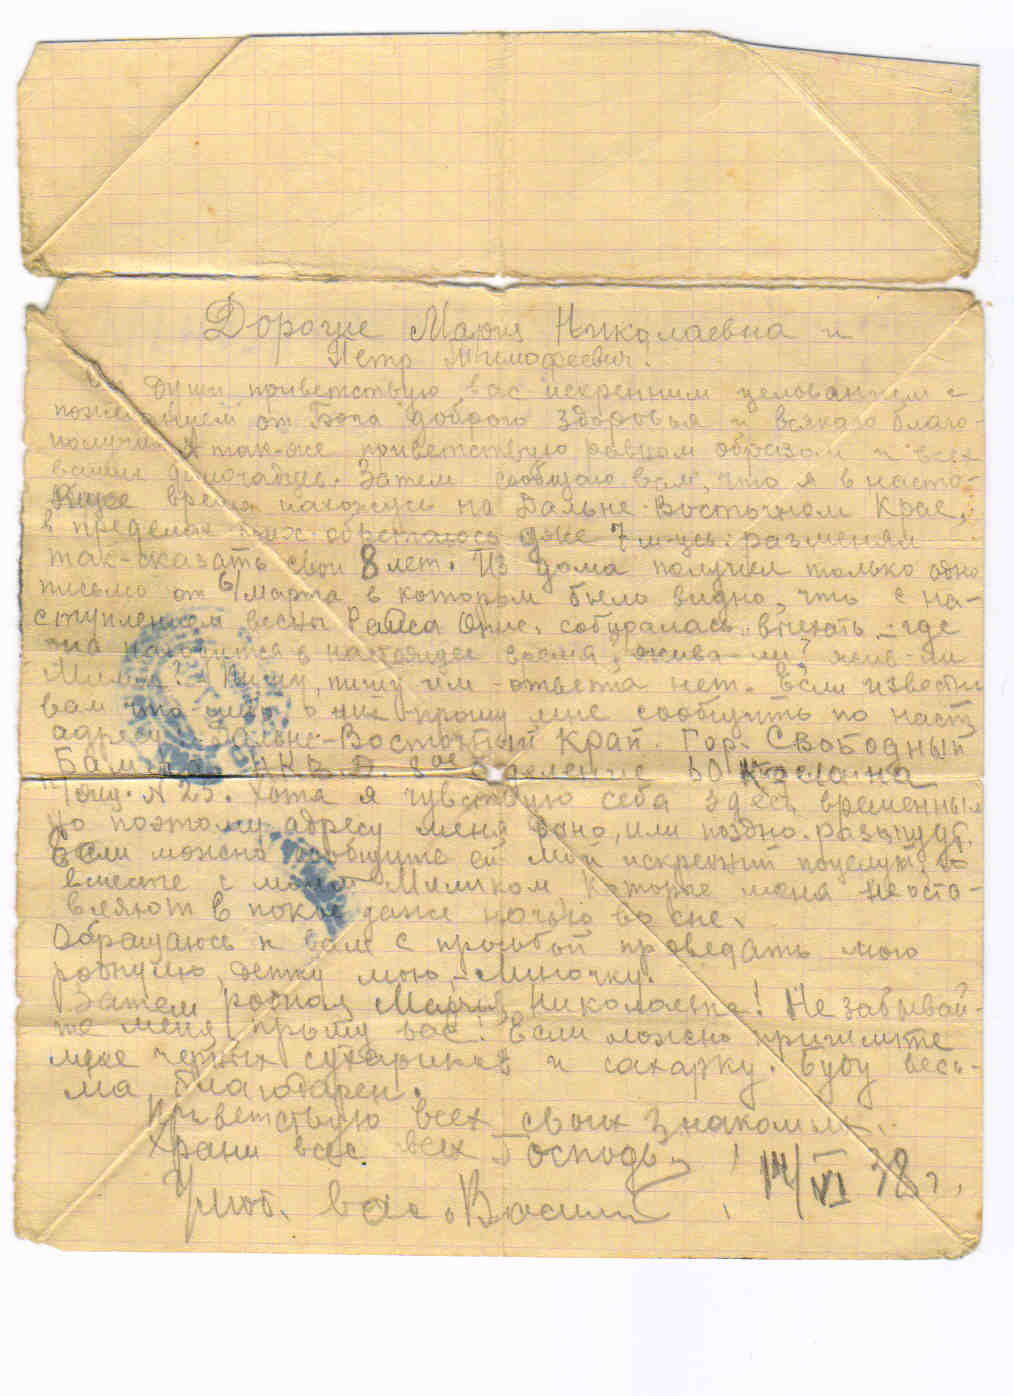 Дорогие Мария Николаевна и
Петр Тимофеевич!
От души приветствую вас искренним целованием с
пожеланием от Бога доброго здоровья и всякого благо-
получия. А так-же приветствую равным образом и всех
ваших домочадцев. Затем сообщаю вам, что я в насто-
ящее время нахожусь на Дальне-Восточном Крае,
в пределах обретаюсь уже 7 м-ць. разменял
так-сказать свои 8 лет. Из дома получил только одно
письмо от 6/ марта в котором было видно, что с на-
ступлением весны Раиса собиралась выехать, - где
она находится в настоящее время, жива-ли? жив-ли
Милик? Пишу, пишу им - ответа нет. Если известно
вам что-либо о них прошу мне сообщить по наст.
адресу: Дальне-Восточный Край. Гор. Свободный
Бамлаг НКВД. 8ое отделение 60 колонна
№ 25. Хотя я чувствую себя здесь временным
но поэтому адресу меня рано, или поздно разыщут.
Если можно сообщите ей мой искренний поцелуй
вместе с моим Миликом которые меня не оста-
вляют в покое даже ночью во сне.
Обращаюсь к вам с просьбой проведать мою
родную, детку мою, - Миночку.
Затем родная Мария Николаевна! Не забывай-
те меня, прошу вас! Если можно пришлите
мне черных сухариков и сахарку. Буду весь-
ма благодарен.
Приветствую всех своих знакомых.
Храни вас всех Господь!
вас Василий 14/VI 38 г.